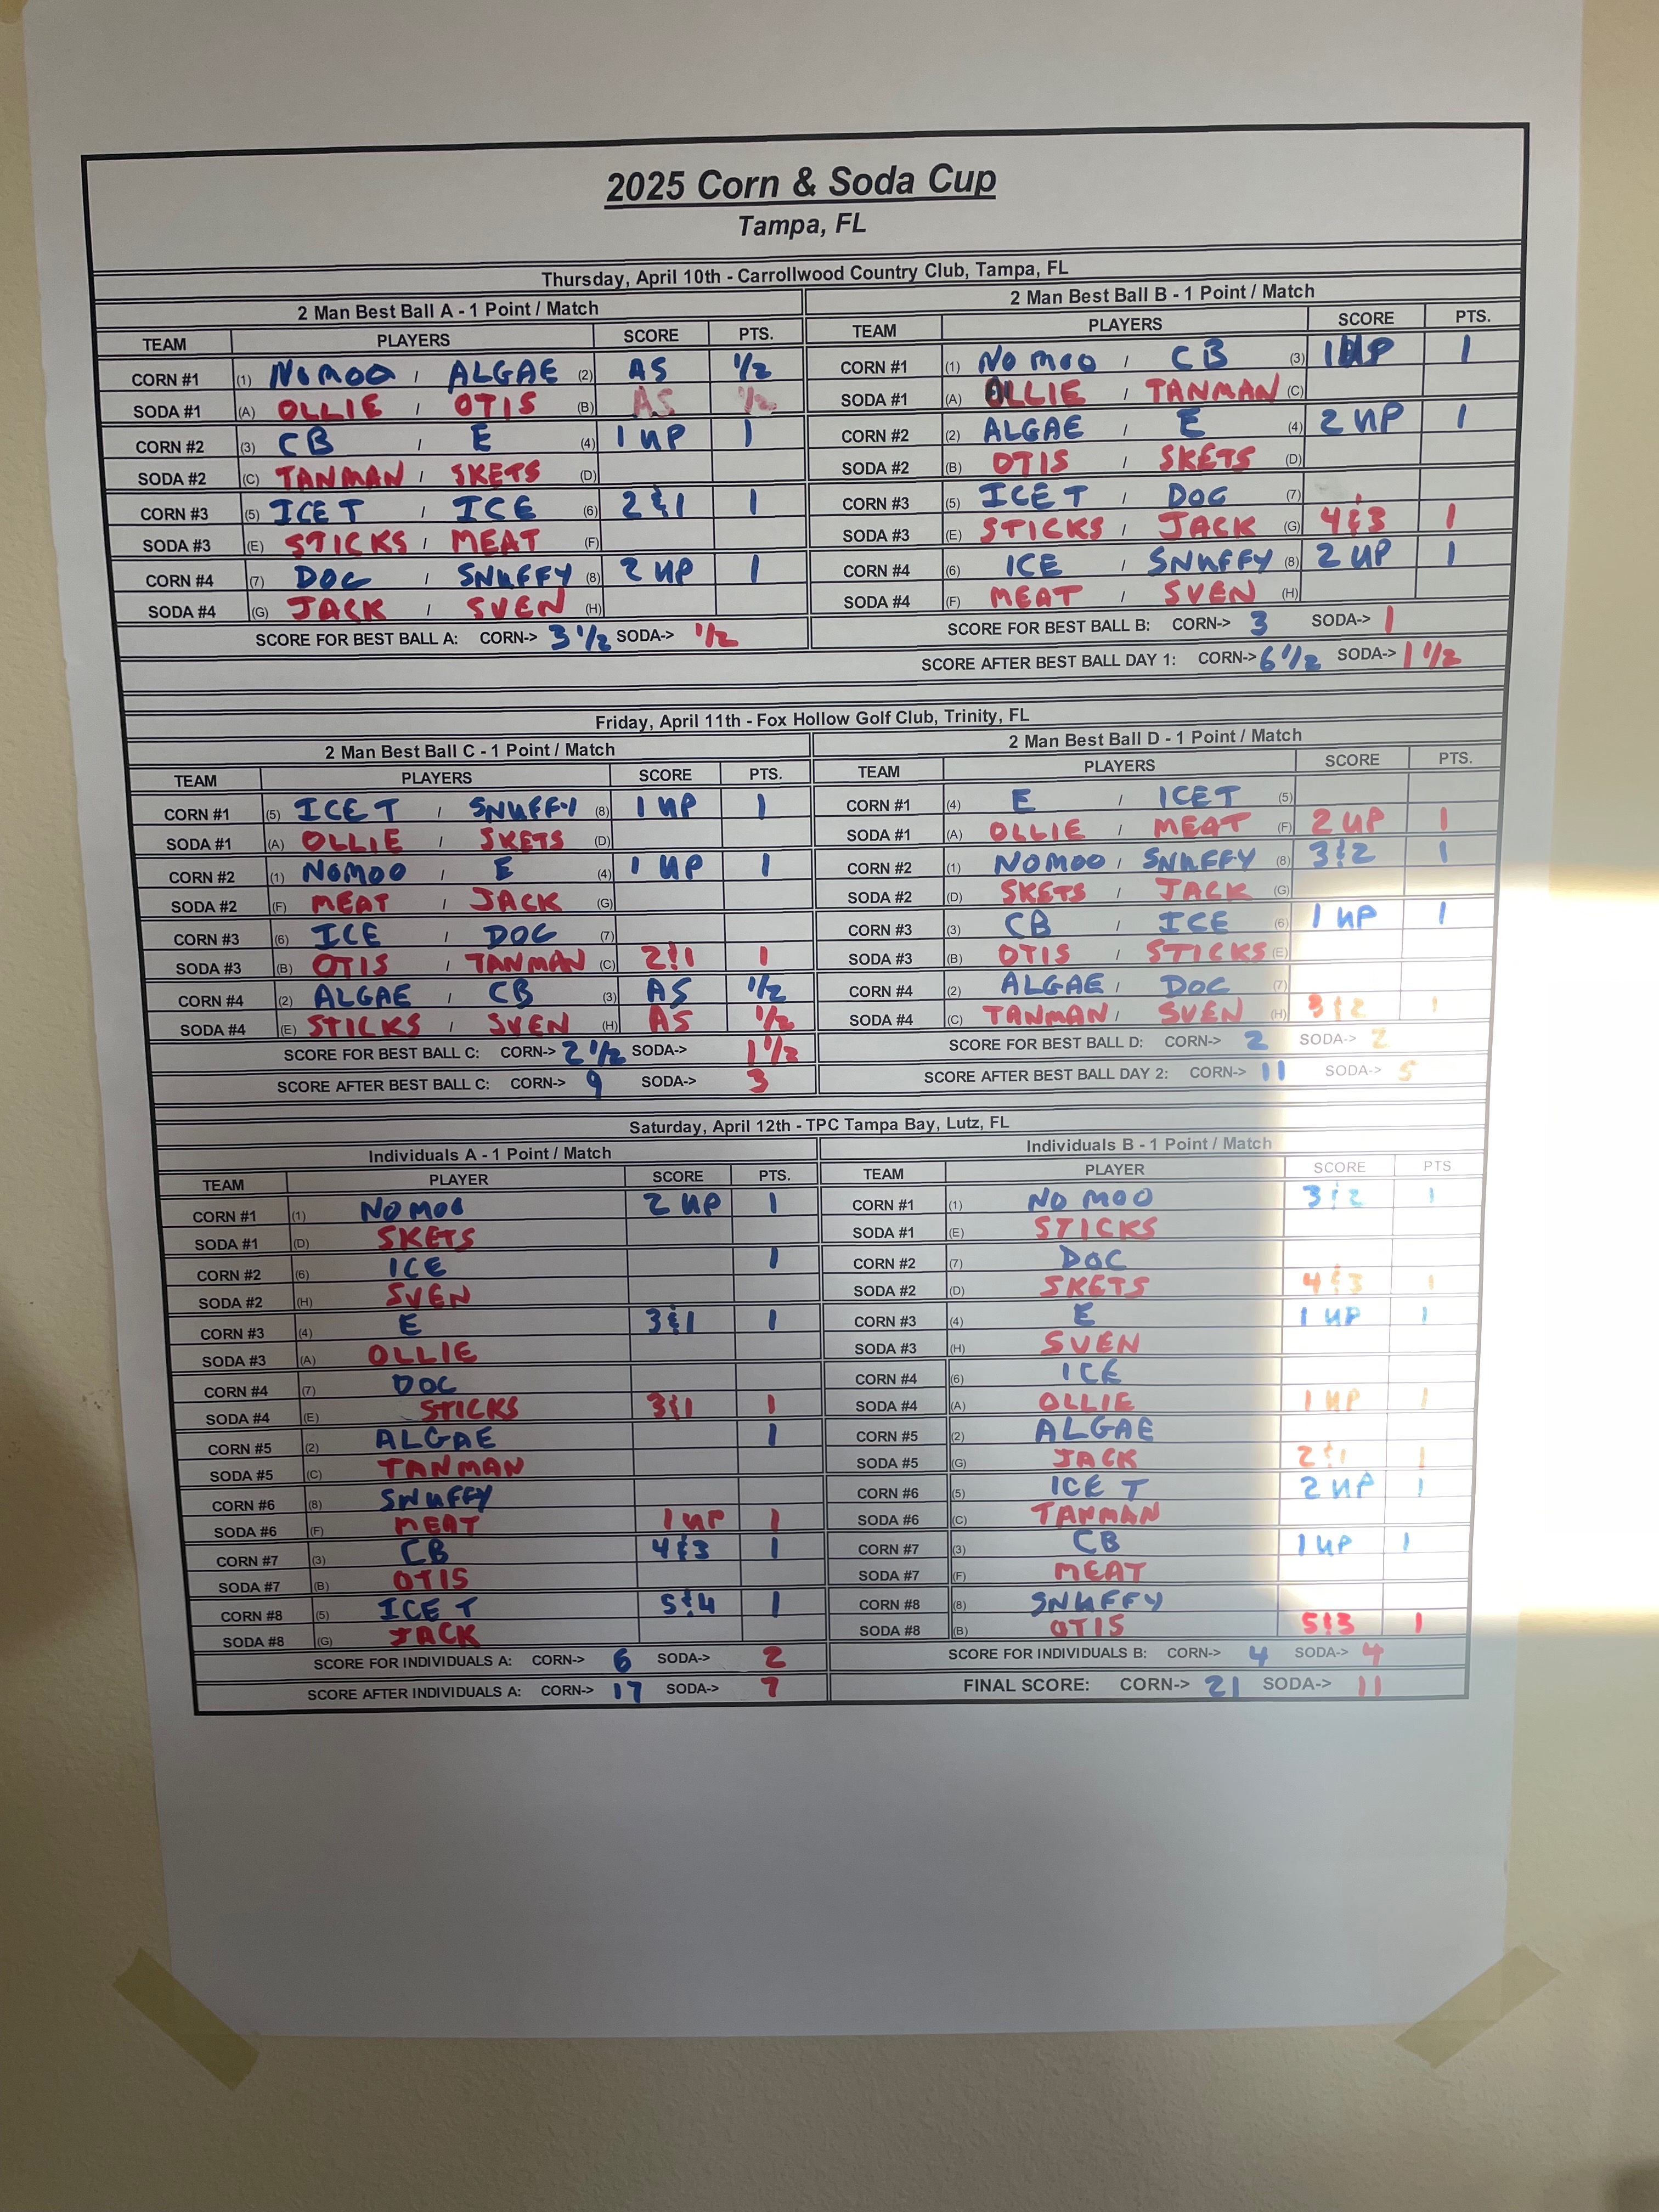 2025 Corn & Soda Cup
Tampa, FL
Thursday, April 10th - Carrollwood Country Club, Tampa, FL
2 Man Best Ball A - 1 Point / Match
TEAM PLAYERS SCORE PTS.
CORN #1 (1) NOMOO / ALGAE (2) AS 1/2
SODA #1 (A) OLLIE / OTIS (B) AS 1/2
CORN #2 (3) CB / E (4) 1 UP 1
SODA #2 (C) TANMAN / SKETS (D)
CORN #3 (5) ICE T / ICE (6) 2&1 1
SODA #3 (E) STICKS / MEAT (F)
CORN #4 (7) DOC / SNUFFY (8) 2 UP 1
SODA #4 (G) JACK / SVEN (H)
SCORE FOR BEST BALL A: CORN-> 3 1/2 SODA-> 1/2
2 Man Best Ball B - 1 Point / Match
TEAM PLAYERS SCORE PTS.
CORN #1 (1) NO MOO / CB (3) 1 UP 1
SODA #1 (A) OLLIE / TANMAN (C)
CORN #2 (2) ALGAE / E (4) 2 UP 1
SODA #2 (B) OTIS / SKETS (D)
CORN #3 (5) ICE T / DOC (7)
SODA #3 (E) STICKS / JACK (G) 4&3 1
CORN #4 (6) ICE / SNUFFY (8) 2 UP 1
SODA #4 (F) MEAT / SVEN (H)
SCORE FOR BEST BALL B: CORN-> 3 SODA-> 1
SCORE AFTER BEST BALL DAY 1: CORN-> 6 1/2 SODA-> 1 1/2
Friday, April 11th - Fox Hollow Golf Club, Trinity, FL
2 Man Best Ball C - 1 Point / Match
TEAM PLAYERS SCORE PTS.
CORN #1 (5) ICE T / SNUFFY (8) 1 UP 1
SODA #1 (A) OLLIE / SKETS (D)
CORN #2 (1) NOMOO / E (4) 1 UP 1
SODA #2 (F) MEAT / JACK (G)
CORN #3 (6) ICE / DOC (7)
SODA #3 (B) OTIS / TANMAN (C) 2&1 1
CORN #4 (2) ALGAE / CB (3) AS 1/2
SODA #4 (E) STICKS / SVEN (H) AS 1/2
SCORE FOR BEST BALL C: CORN-> 2 1/2 SODA-> 1 1/2
SCORE AFTER BEST BALL C: CORN-> 9 SODA-> 3
2 Man Best Ball D - 1 Point / Match
TEAM PLAYERS SCORE PTS.
CORN #1 (4) E / ICE T (5)
SODA #1 (A) OLLIE / MEAT (F) 2 UP 1
CORN #2 (1) NOMOO / SNUFFY (8) 3&2 1
SODA #2 (D) SKETS / JACK (G)
CORN #3 (3) CB / ICE (6) 1 UP 1
SODA #3 (B) OTIS / STICKS (E)
CORN #4 (2) ALGAE / DOC (7)
SODA #4 (C) TANMAN / SVEN (H) 3&2 1
SCORE FOR BEST BALL D: CORN-> 2 SODA-> 2
SCORE AFTER BEST BALL DAY 2: CORN-> 11 SODA-> 5
Saturday, April 12th - TPC Tampa Bay, Lutz, FL
Individuals A - 1 Point / Match
TEAM PLAYER SCORE PTS.
CORN #1 (1) NOMOO 2 UP 1
SODA #1 (D) SKETS
CORN #2 (6) ICE 1
SODA #2 (H) SVEN
CORN #3 (4) E 3&1 1
SODA #3 (A) OLLIE
CORN #4 (7) DOC
SODA #4 (E) STICKS 3&1 1
CORN #5 (2) ALGAE 1
SODA #5 (C) TANMAN
CORN #6 (8) SNUFFY
SODA #6 (F) MEAT 1 UP 1
CORN #7 (3) CB 4&3 1
SODA #7 (B) OTIS
CORN #8 (5) ICE T 5&4 1
SODA #8 (G) JACK
SCORE FOR INDIVIDUALS A: CORN-> 6 SODA-> 2
SCORE AFTER INDIVIDUALS A: CORN-> 17 SODA-> 7
Individuals B - 1 Point / Match
TEAM PLAYER SCORE PTS
CORN #1 (1) NO MOO 3&2 1
SODA #1 (E) STICKS
CORN #2 (7) DOC
SODA #2 (D) SKETS 4&3 1
CORN #3 (4) E 1 UP 1
SODA #3 (H) SVEN
CORN #4 (6) ICE
SODA #4 (A) OLLIE 1 UP 1
CORN #5 (2) ALGAE
SODA #5 (G) JACK 2&1 1
CORN #6 (5) ICE T 2 UP 1
SODA #6 (C) TANMAN
CORN #7 (3) CB 1 UP 1
SODA #7 (F) MEAT
CORN #8 (8) SNUFFY
SODA #8 (B) OTIS 5&3 1
SCORE FOR INDIVIDUALS B: CORN-> 4 SODA-> 4
FINAL SCORE: CORN-> 21 SODA-> 11